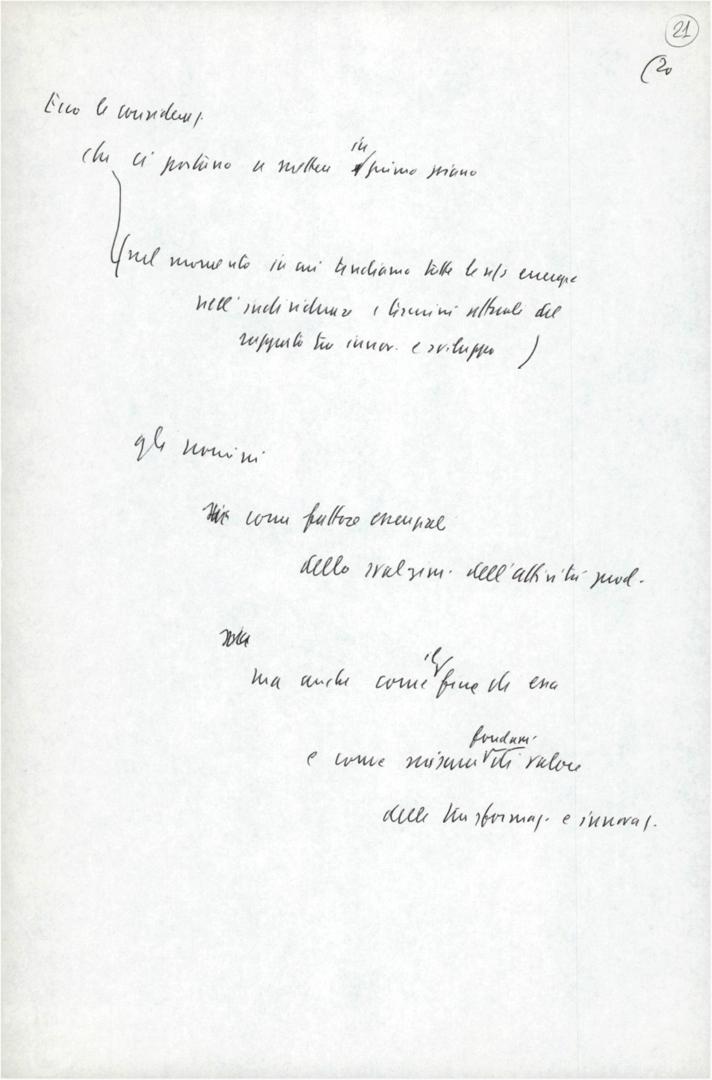 21
(20
Ecco le consideraz.
che ci portano a mettere in primo piano
(nel momento in cui tendiamo tutte le ns/ energie
nell'individuare i termini attuali del
rapporto tra innov. e sviluppo)
gli uomini
come fattore essenziale
dello svolgim. dell'attività prod.
ma anche come il fine di essa
e come misura fondam. di valore
delle trasformaz. e innovaz.